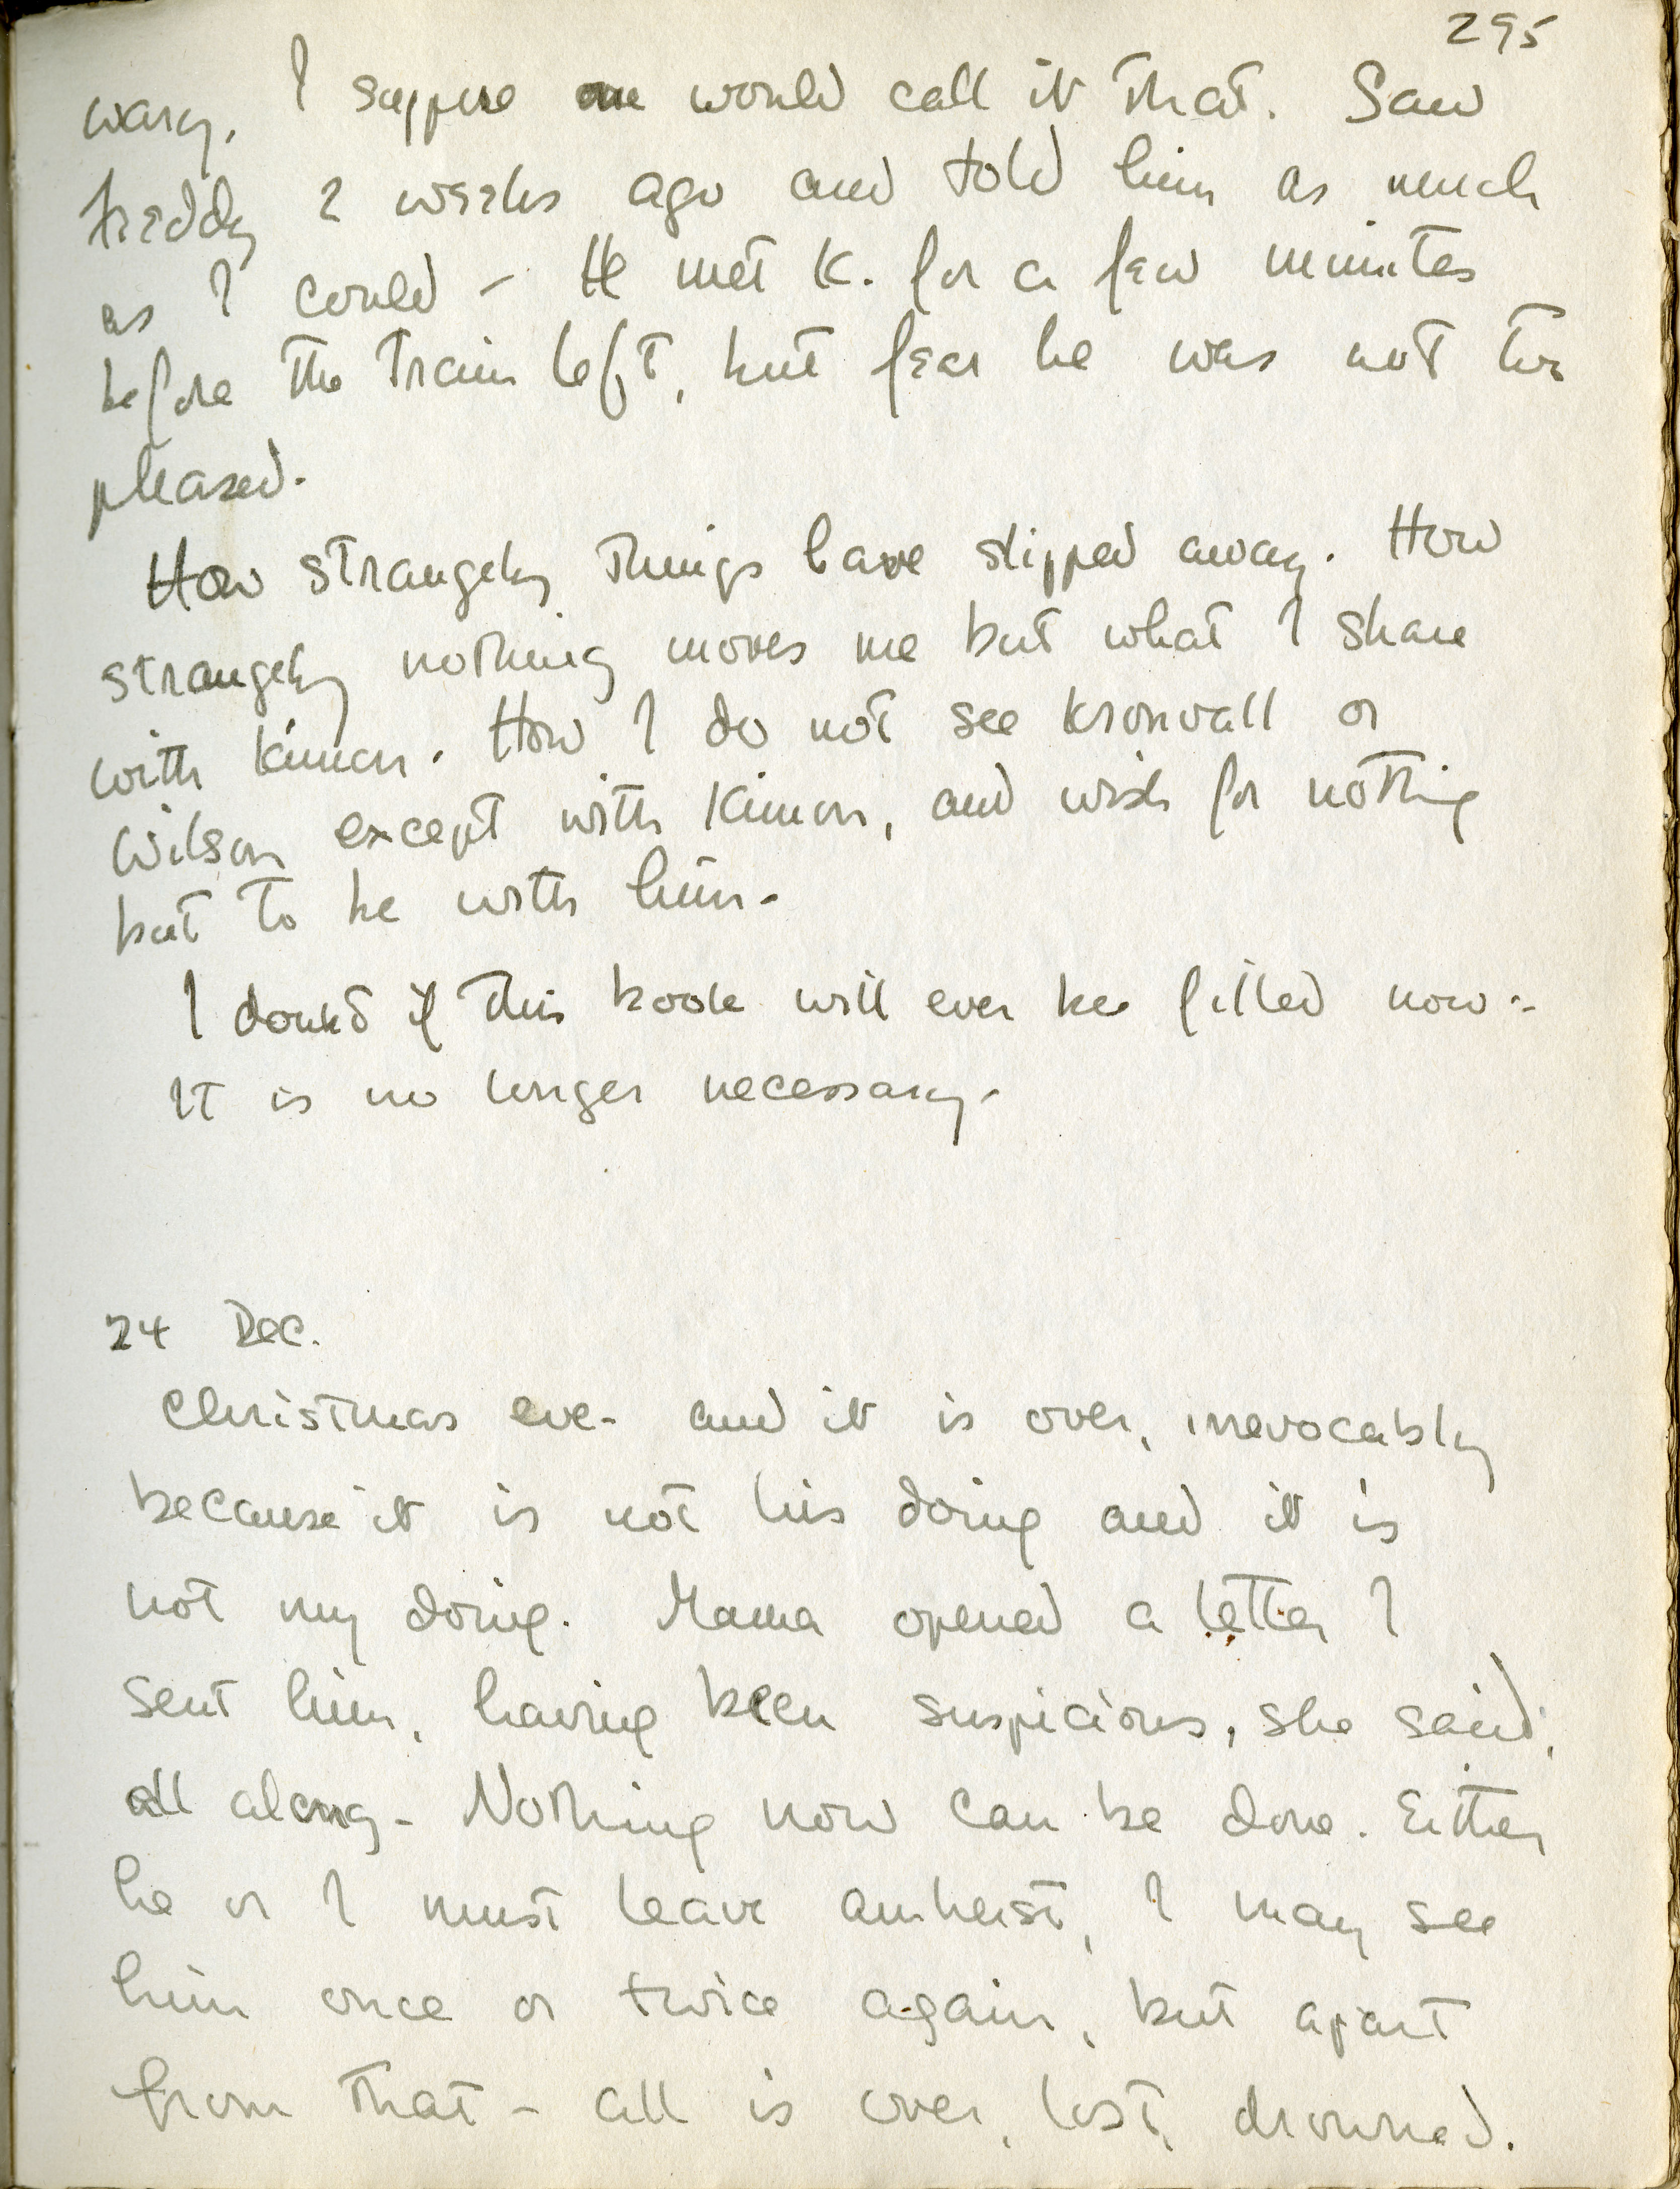 295
wary, I suppose one would call it that. Saw
Freddy 2 weeks ago and told him as much
as I could – He met K. for a few minutes
before the train left, but fear he was not too
pleased.
How strangely things have slipped away. How
strangely nothing moves me but what I share
with Kimon. How I do not see Kronvall or
Wilson except with Kimon, and wish for nothing
but to be with him.
I doubt if this book will ever be filled now –
It is no longer necessary.
24 Dec.
Christmas eve – and it is over, irrevocably
because it is not his doing and it is
not my doing. Mama opened a letter I
sent him, having been suspicious, she said,
all along – Nothing now can be done. Either
he or I must leave Amherst, I may see
him once or twice again, but apart
from that – all is over, lost, drowned.